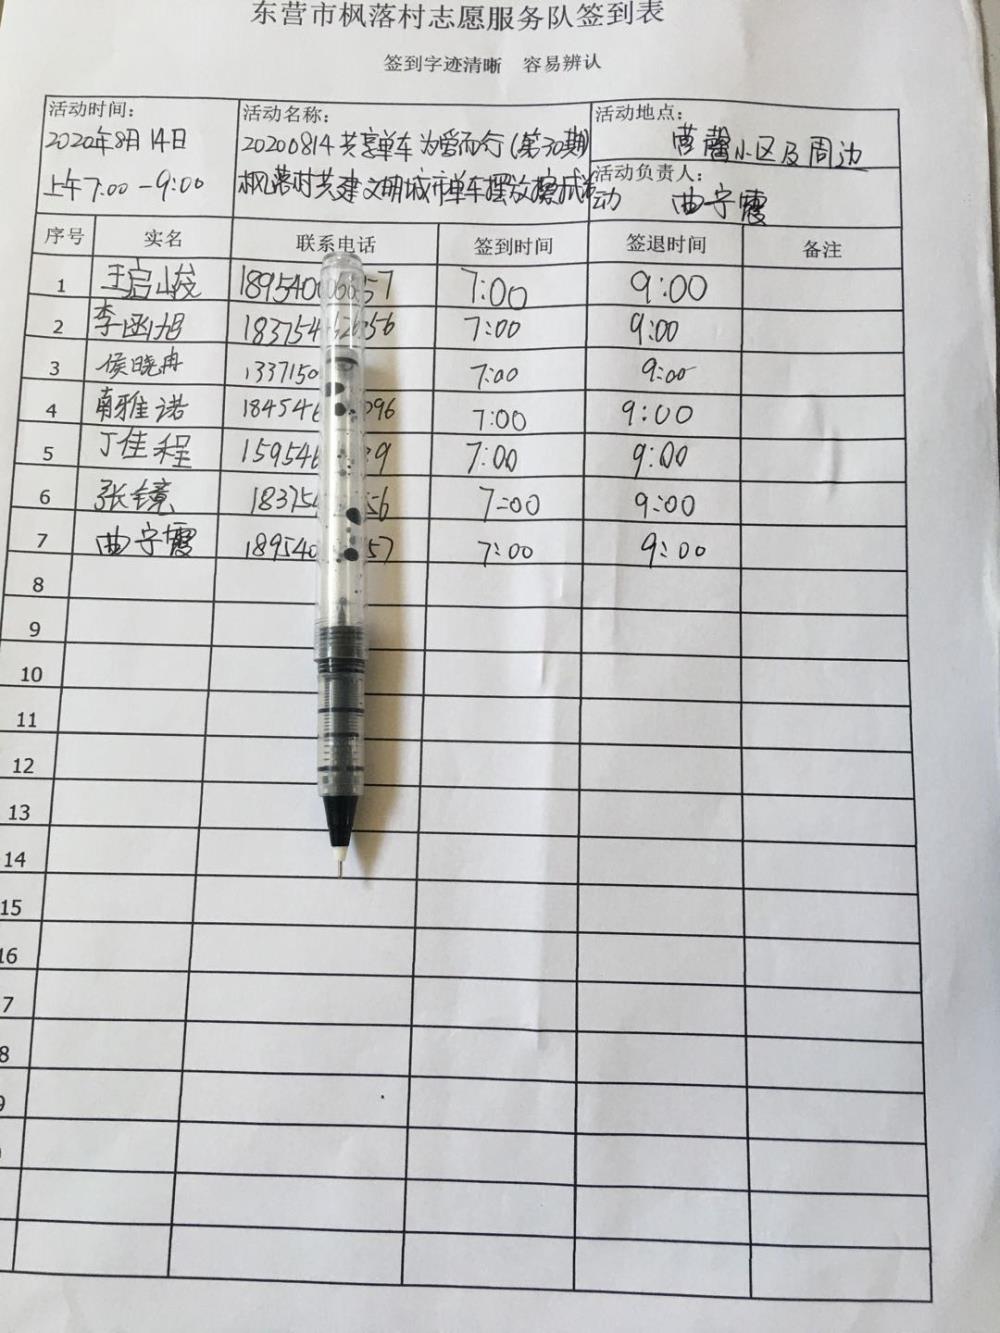 东营市枫落村志愿服务队签到表
签到字迹清晰 容易辨认
活动时间:
2020年8月14日
上午7:00-9:00
活动名称:
20200814共享单车为爱而行(第30期)
枫落村共建文明城市单车摆放擦拭活动
活动地点:
小区及周边
活动负责人:
曲宁霞
序号 实名 联系电话 签到时间 签退时间 备注
1 王启峻 7:00 9:00
2 李函旭 7:00 9:00
3 侯晓冉 7:00 9:00
4 南雅诺 7:00 9:00
5 丁佳程 7:00 9:00
6 张镜 7:00 9:00
7 曲宁霞 7:00 9:00
8
9
10
11
12
13
14
15
16
7
8
9